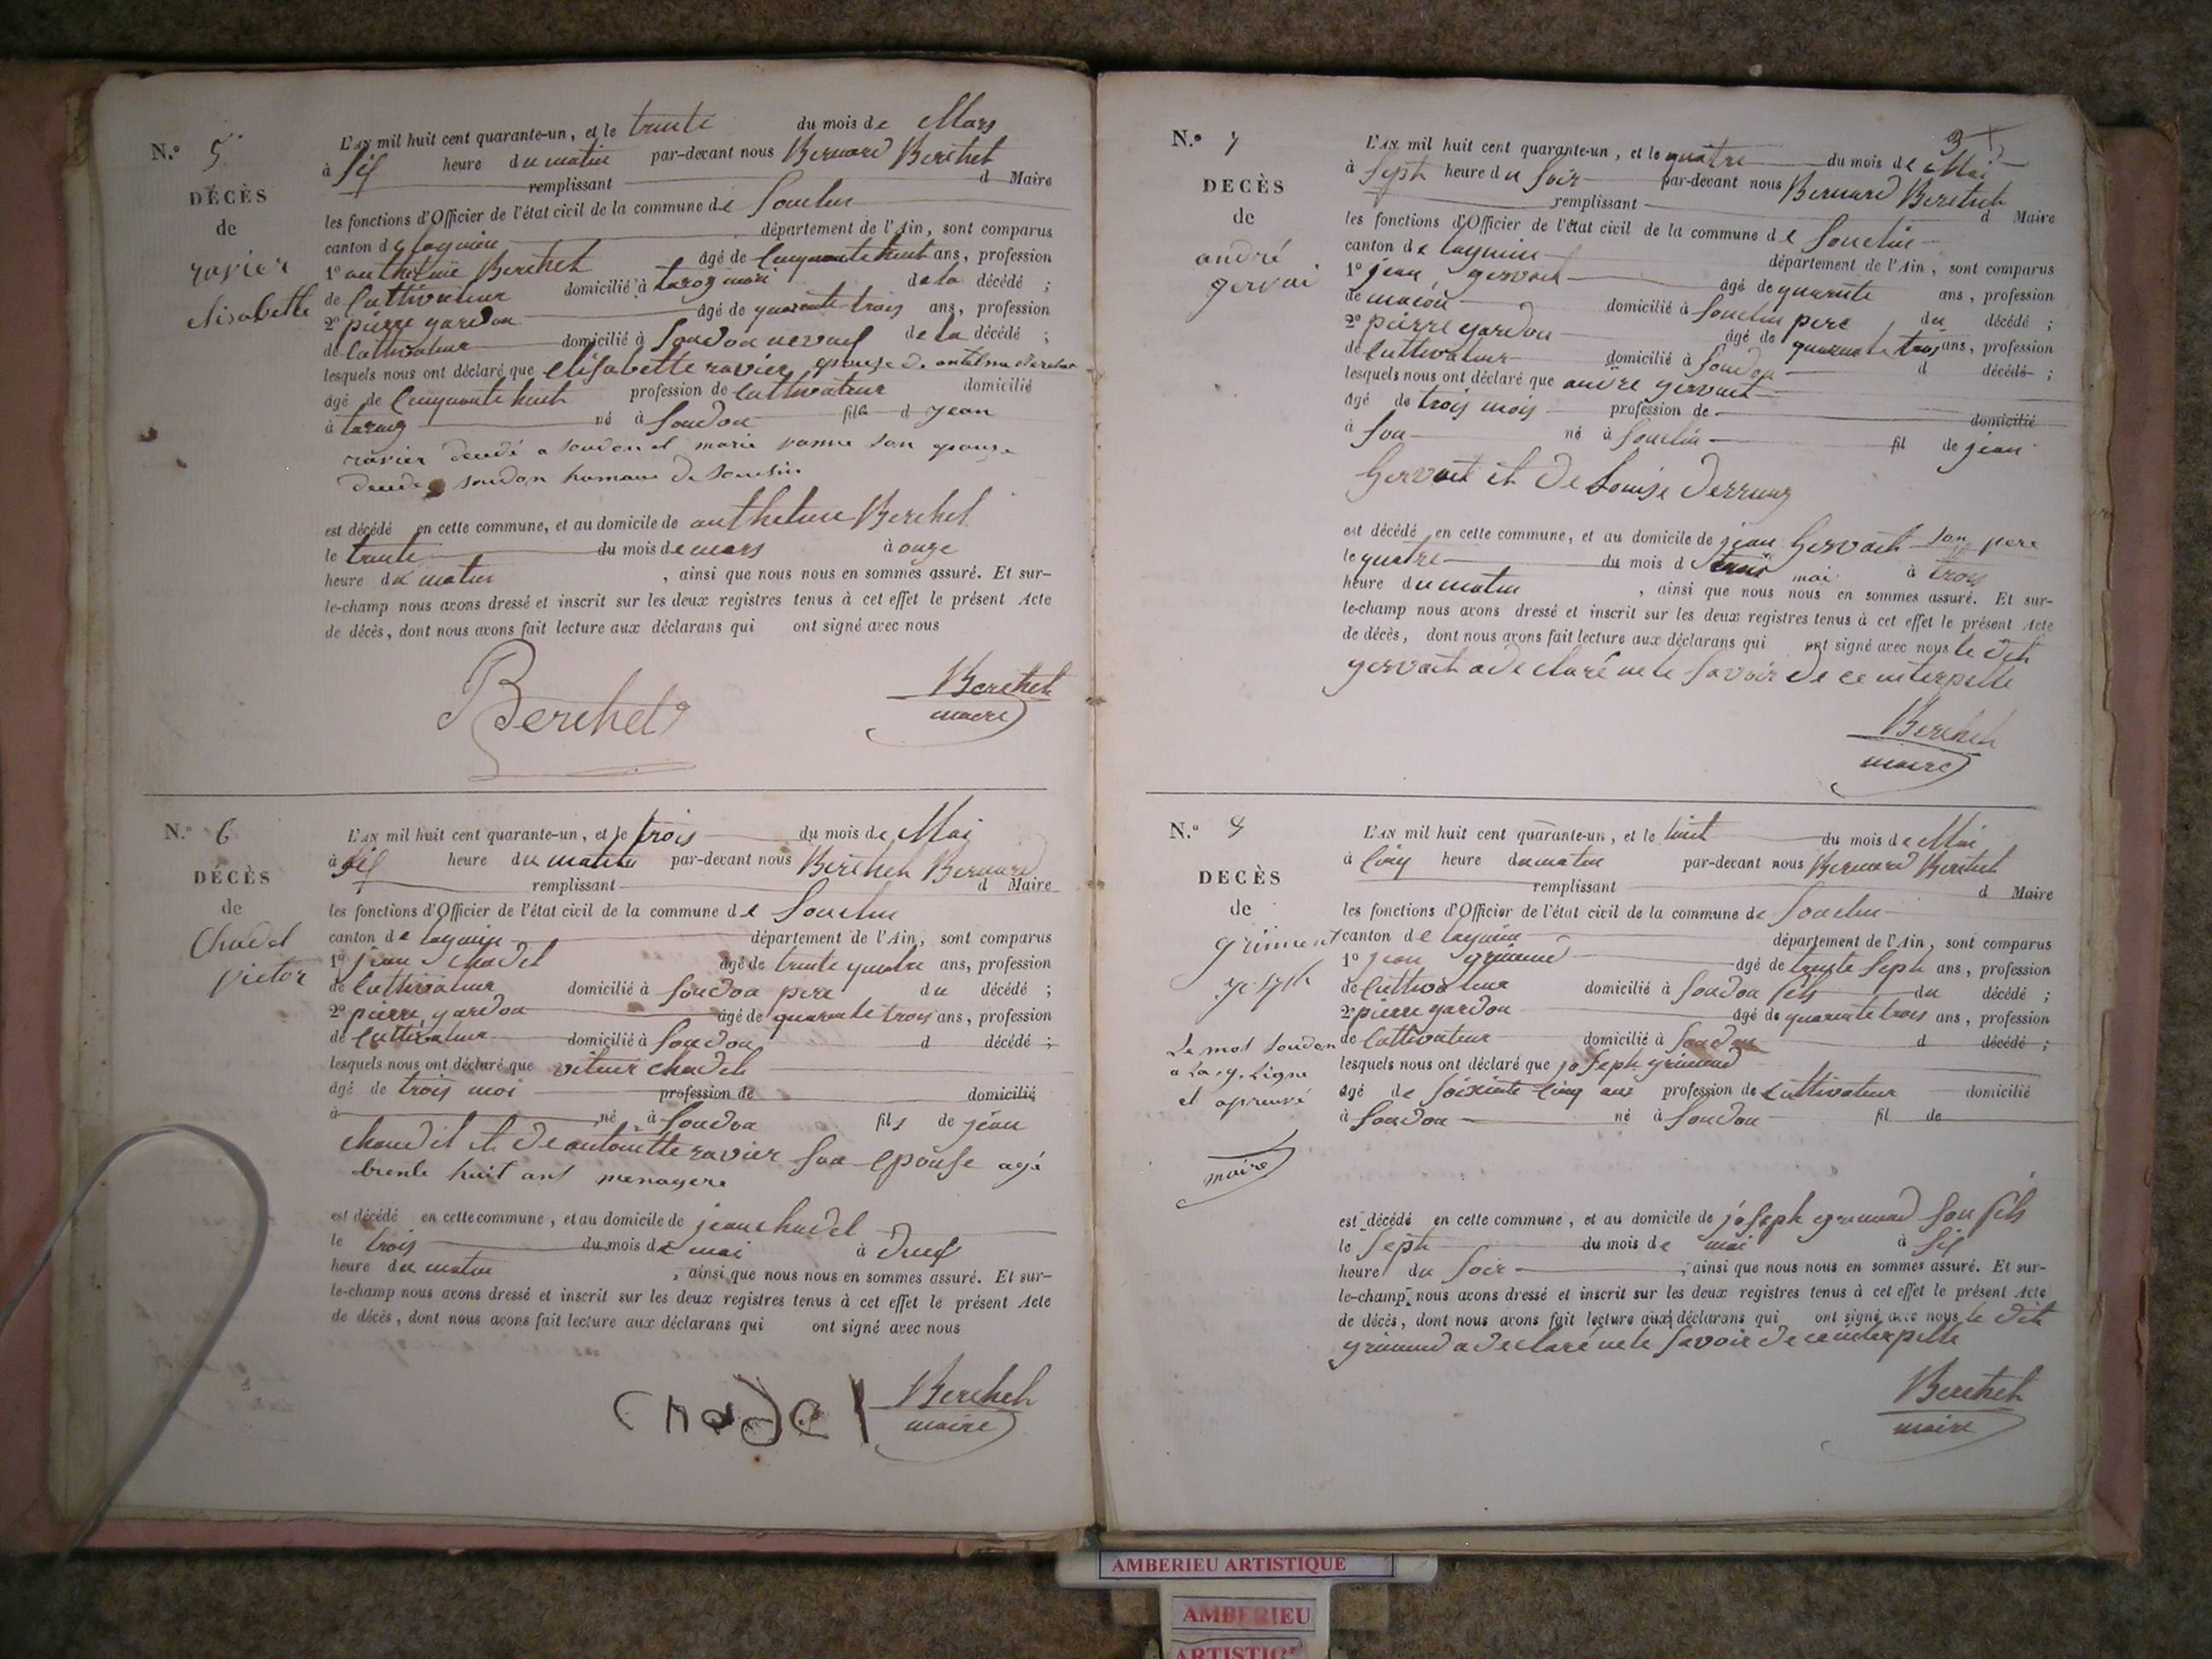 N.º 5
DÉCÈS
de
ravier
elisabette
L'AN mil huit cent quarante-un, et le trente du mois de Mars
à six heure du matin par-devant nous Bernard Berchet
remplissant d Maire
les fonctions d'Officier de l'état civil de la commune de Souclin
canton de lagnieu département de l'Ain, sont comparus
1º anthelme Berchet âgé de Cinquante huit ans, profession
de Cultivateur domicilié à mari de la décédé ;
2º pierre gardon âgé de quarante trois ans, profession
de Cultivateur domicilié à Soudon de la décédé ;
lesquels nous ont déclaré que elisabette ravier epouse de antelme Berchet
âgé de Cinquante huit profession de Cultivateur domicilié
à né à Soudon fille d jean
ravier décédé a soudon et marie son epouse
soudon hamau de Souclin
est décédé en cette commune, et au domicile de anthelme Berchet
le trente du mois de mars à onze
heure du matin , ainsi que nous nous en sommes assuré. Et sur-
le-champ nous avons dressé et inscrit sur les deux registres tenus à cet effet le présent Acte
de décès, dont nous avons fait lecture aux déclarans qui ont signé avec nous
Berchet
Berchet
maire
N.º 6
DÉCÈS
de
Chadel
victor
L'AN mil huit cent quarante-un, et le trois du mois de Mai
à six heure du matin par-devant nous Berchet Bernard
remplissant d Maire
les fonctions d'Officier de l'état civil de la commune de Souclin
canton de lagnieu département de l'Ain, sont comparus
1º jean chadel âgé de trente quatre ans, profession
de Cultivateur domicilié à Soudon pere du décédé ;
2º pierre gardon âgé de quarante trois ans, profession
de Cultivateur domicilié à Soudon d décédé ;
lesquels nous ont déclaré que chadel
âgé de trois moi profession de domicilié
à né à Soudon fils de jean
et de antoinette ravier son Epouse agé
trente huit ans menagere
est décédé en cette commune, et au domicile de jean chadel
le trois du mois de mai à deux
heure du matin , ainsi que nous nous en sommes assuré. Et sur-
le-champ nous avons dressé et inscrit sur les deux registres tenus à cet effet le présent Acte
de décès, dont nous avons fait lecture aux déclarans qui ont signé avec nous
Chadel
Berchet
maire
N.º 7
DECÈS
de
andré
gervai
L'AN mil huit cent quarante-un, et le quatre du mois de Mai
à Sept heure du Soir par-devant nous Bernard Berchet
remplissant d Maire
les fonctions d'Officier de l'état civil de la commune de Souclin
canton de lagnieu département de l'Ain, sont comparus
1º jean gervait âgé de quarente ans, profession
de macon domicilié à Souclin pere du décédé ;
2º pierre gardon âgé de quarante trois ans, profession
de Cultivateur domicilié à Soudon d décédé ;
lesquels nous ont déclaré que andre gervait
âgé de trois mois profession de domicilié
à né à Souclin fil de jean
Gervait et de Louise
est décédé en cette commune, et au domicile de jean Gervait son pere
le quatre du mois d mai à trois
heure du matin , ainsi que nous nous en sommes assuré. Et sur-
le-champ nous avons dressé et inscrit sur les deux registres tenus à cet effet le présent Acte
de décès, dont nous avons fait lecture aux déclarans qui ont signé avec nous le dit
gervait a declaré ne le Savoir de ce interpellé
Berchet
maire
N.º 8
DECÈS
de
grimment
Le mot Soudon
a La 9. Ligne
et apreuvé
maire
L'AN mil huit cent quarante-un, et le huit du mois de Mai
à Cinq heure du matin par-devant nous Bernard Berchet
remplissant d Maire
les fonctions d'Officier de l'état civil de la commune de Souclin
canton de lagnieu département de l'Ain, sont comparus
1º jean grimaud âgé de trente Sept ans, profession
de Cultivateur domicilié à Soudon fils du décédé ;
2º pierre gardon âgé de quarente trois ans, profession
de Cultivateur domicilié à Soudon d décédé ;
lesquels nous ont déclaré que joseph grimaud
âgé de Soixente Cinq ans profession de Cultivateur domicilié
à Soudon né à Soudon fil de
est décédé en cette commune, et au domicile de joseph grimaud Son fils
le Sept du mois de mai à Six
heure du Soir , ainsi que nous nous en sommes assuré. Et sur-
le-champ nous avons dressé et inscrit sur les deux registres tenus à cet effet le présent Acte
de décès, dont nous avons fait lecture aux déclarans qui ont signé avec nous le dit
grimaud a declaré ne le Savoir de ce interpellé
Berchet
maire
AMBERIEU ARTISTIQUE
AMBERIEU
ARTISTIQ